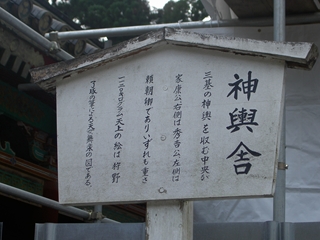 神輿舎
三基の神輿を収む中央が
家康公右側は秀吉公左側は
頼朝卿でありいずれも重さ
一二〇キログラム天上の絵は狩野
了琢の筆による天女無楽の図である